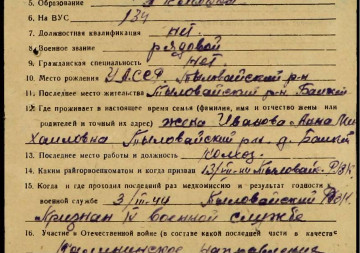 5. Образование
6. На ВУС 134
7. Должностная квалификация нет.
8. Военное звание рядовой
9. Гражданская специальность нет.
10. Место рождения УАССР, Тыловайский р-н
11. Последнее место жительства Тыловайский р-н
12. Где проживает в настоящее время семья (фамилия, имя и отчество жены или
родителей и точный их адрес) жена Иванова Анна Ми-
хайловна Тыловайский р-н. д.
13. Последнее место работы и должность колхоз.
14. Каким райгорвоенкоматом и когда призван Тыловайск. РВК.
15. Когда и где проходил последний раз медкомиссию и результат годности в
военной службе 3/III-44 Тыловайский РВК.
Признан к военной службе
16. Участие в Отечественной войне (в составе какой последней части и в качест-
Калининское направление